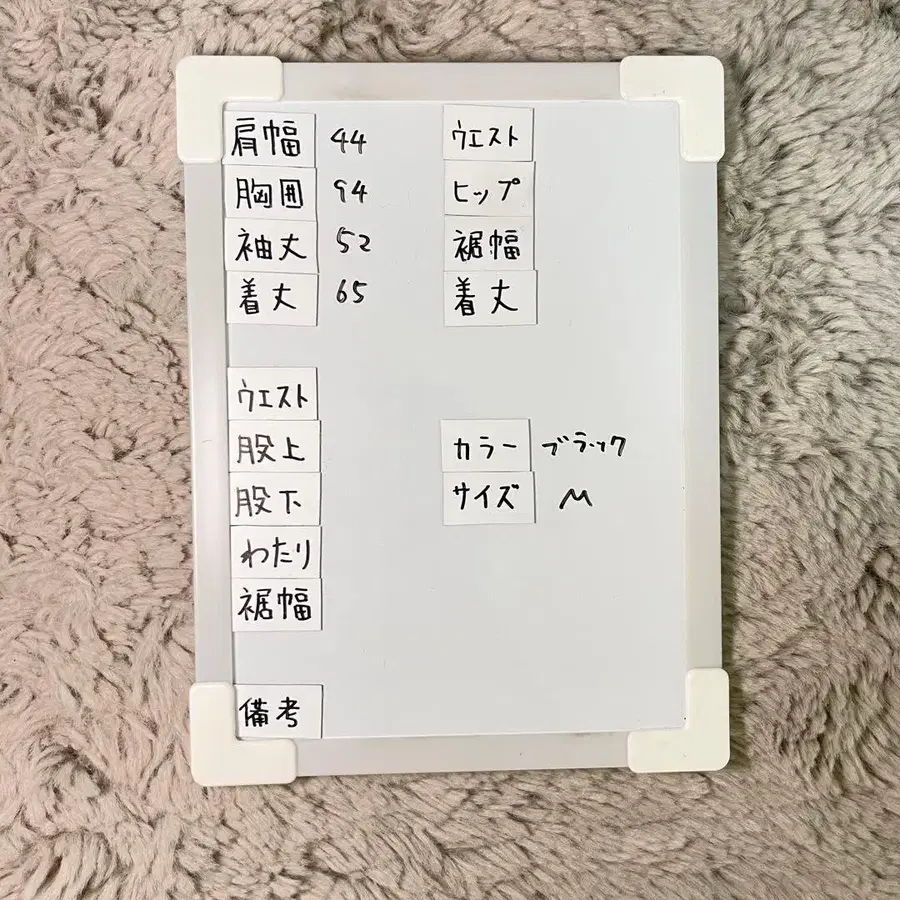 肩幅 44
胸囲 94
袖丈 52
着丈 65
ウエスト
ヒップ
裾幅
着丈
ウエスト
股上
股下
わたり
裾幅
カラー ブラック
サイズ M
備考